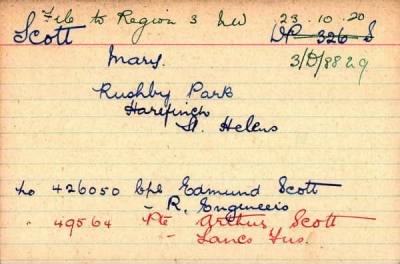 F/6 to Region 3 NW 23.10.20
Scott DP 326 S
Mary. 3/D/8829
Rushby Park
Harefinch
St. Helens
no 426050 Cpl Edmund Scott
- R. Engineers
" 49564 Pte Arthur Scott
- Lancs Fus.